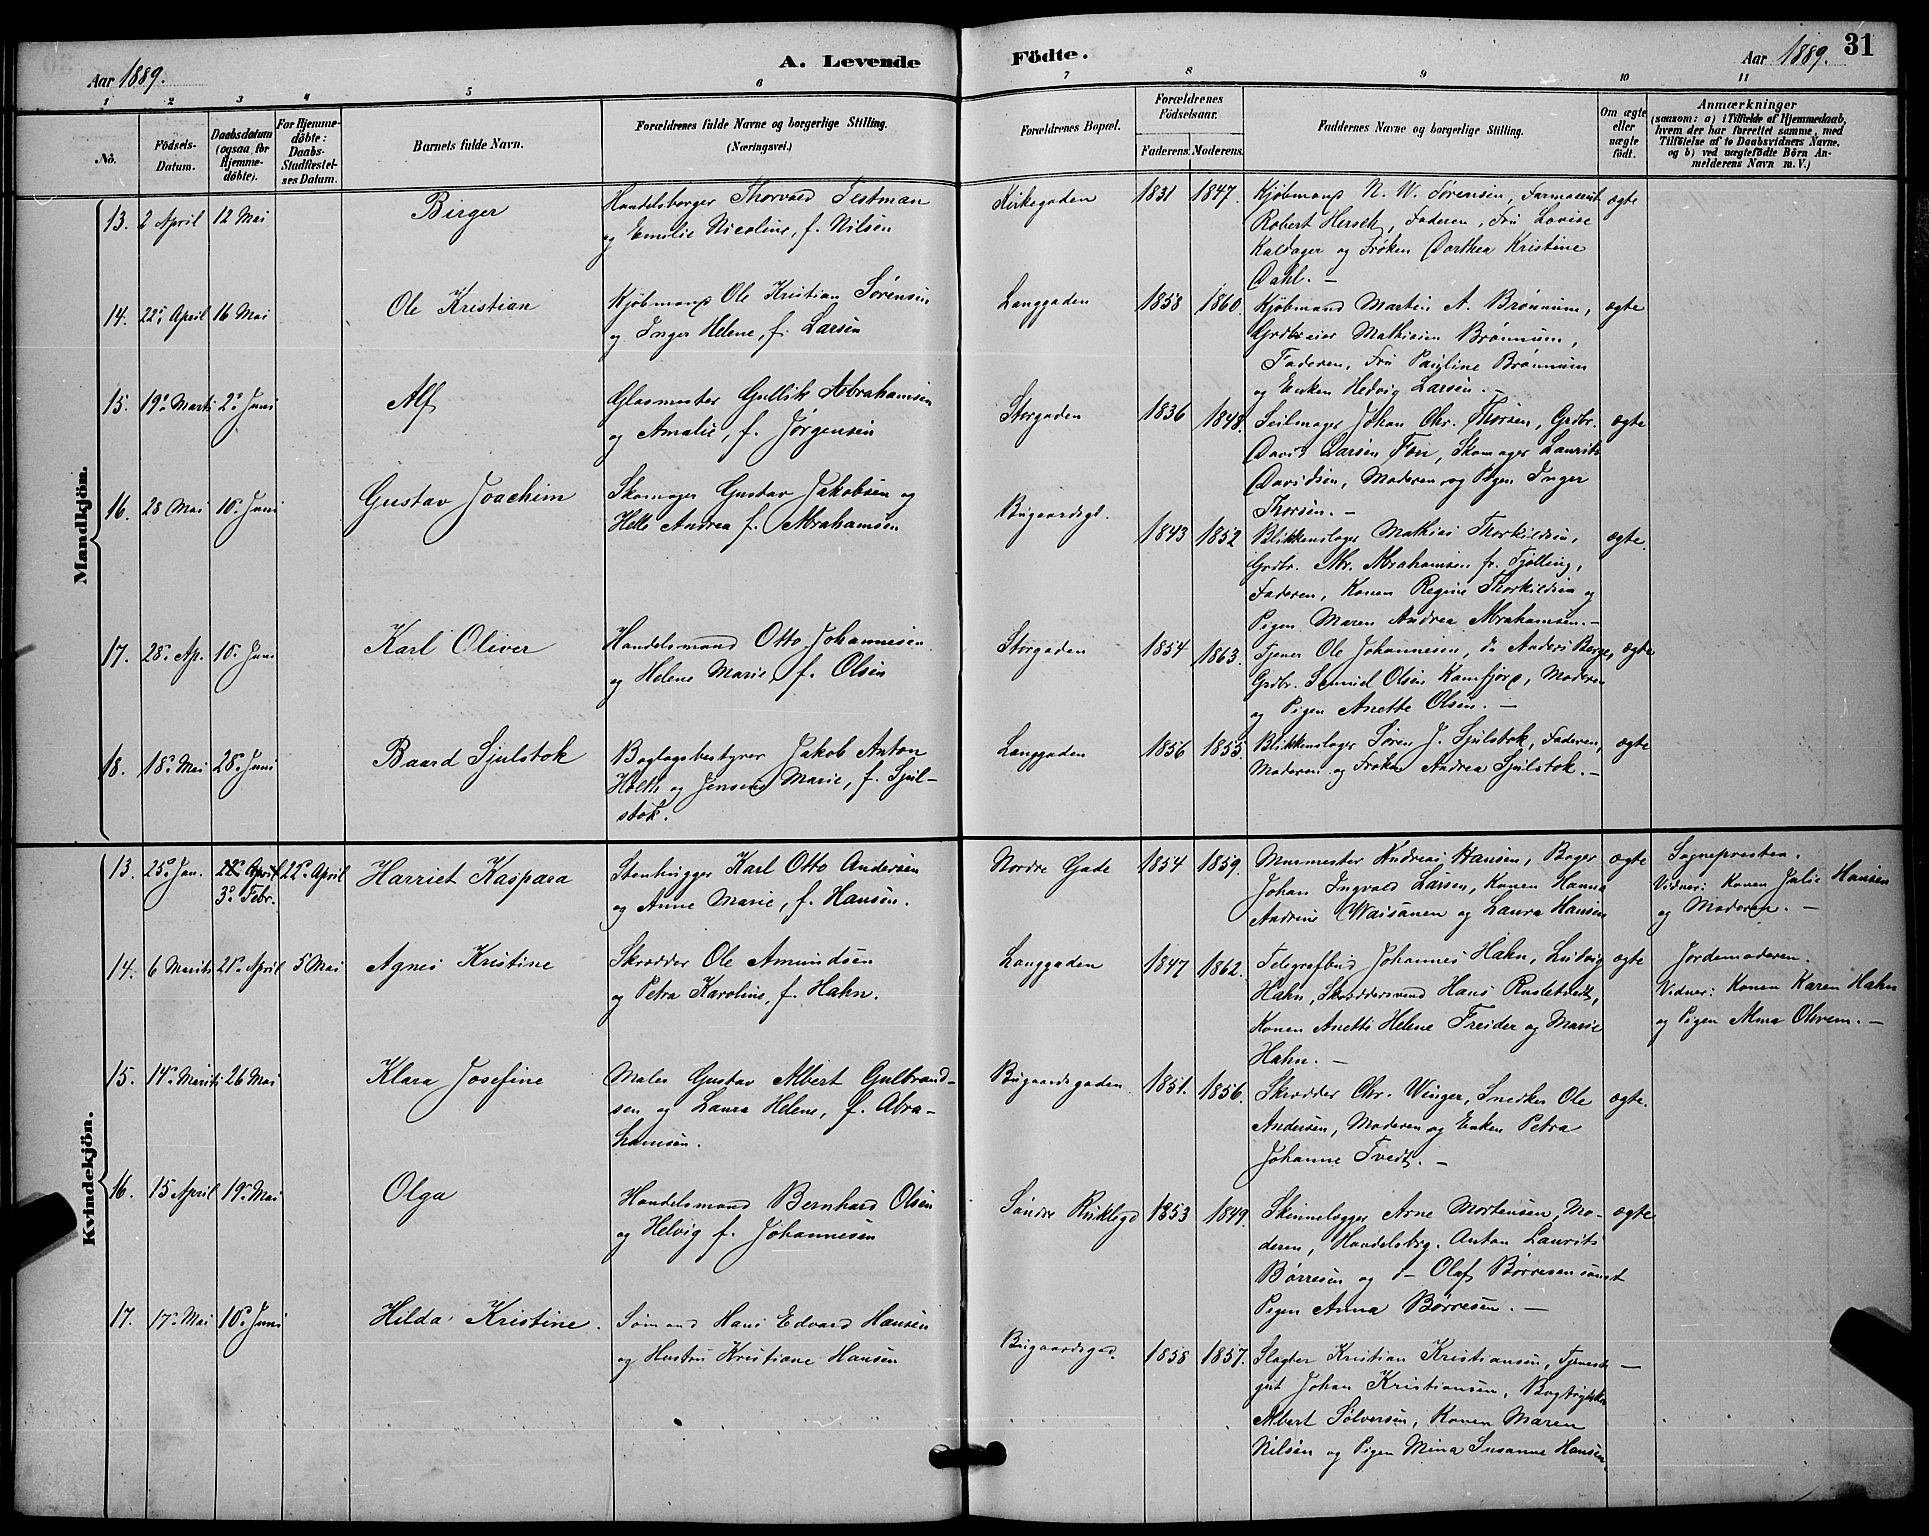 Aar 1889.
A. Levende
Födte.
Aar 1889.
31
1
2
3
4
5
6
7
8
9
10
11
No.
Födsels-
Datum.
Daabsdatum
(ogsaa for
Hjemme-
döbte).
For Hjemme-
döbte:
Daabs-
Stadfæstel-
ses Datum.
Barnets fulde Navn.
Forældrenes fulde Navne og borgerlige Stilling.
(Næringsvei.)
Forældrenes Bopæl.
Forældrenes
Födselsaar.
Faderens.
Moderens.
Faddernes Navne og borgerlige Stilling.
Om ægte
eller
uægte
födt.
Anmærkninger
(saasom: a) i Tilfælde af Hjemmedaab,
hvem der har forrettet samme, med
Tilföielse af to Daabsvidners Navne,
og b) ved uægtefödte Börn An-
melderens Navn m. V.)
Mandkjön.
13. 2 April 12 Mai
Birger
Handelsborger Thorvald Testman
og Emilie Nicoline, f. Nilsen
Kirkegaden
1831 1847.
Kjøbmand N. W. Sørensen, Farmaceut
Robert Hersch, Faderen, Fru Lovise
Kaldager og Frøken Dorthea Kristine
Dahl. —
ægte
14. 22. April 16 Mai
Ole Kristian
Kjøbmand Ole Kristian Sørensen
og Inger Helene, f. Larsen
Langgaden
1858 1860.
Kjøbmand Martin A. Brønnum,
Grdbr.eier Mathisen Brønnum,
Faderen, Fru Pauline Brønnum
og Enken Hedvig Larsen. —
ægte
15. 19. Marts 2. Juni
Alf
Glasmester Gullik Abrahamsen
og Amalie, f. Jørgensen
Storgaden
1836 1848.
Seilmager Johan Chr. Thorsen, Grdbr.
David Larsen Fon, Skomager Laurits
Davidsen, Moderen og Pigen Inger
Thorsen. —
ægte
16. 28 Mai 10. Juni
Gustav Joachim
Skomager Gustav Jakobsen og
Helle Andrea f. Abrahamsen
Bugaardsgd.
1843 1852
Blikkenslager Mathias Thorkildsen,
Grdbr. Abr. Abrahamsen fr. Tjølling,
Faderen, Konen Regine Thorkildsen og
Pigen Maren Andrea Abrahamsen. —
ægte.
17. 28. Ap. 10. Juni
Karl Oliver
Handelsmand Otto Johannesen
og Helene Marie, f. Olsen
Storgaden
1854 1863.
Tjener Ole Johannesen, do Anders Berge,
Grdbr. Samuel Olsen Kamfjord, Moderen
og Pigen Anette Olsen. —
ægte
18. 18. Mai 28. Juni
Baard Sjulstok
Boglagsbestyrer Jakob Anton
Holth og Jensine Marie, f. Sjul-
stok.
Langgaden
1856 1855.
Blikkenslager Søren J. Sjulstok, Faderen,
Moderen og Frøken Andrea Sjulstok. —
ægte
Kvindekjön.
13. 25. Jan. 22. April 22. April
3. Febr.
Harriet Kaspara
Stenhugger Karl Otto Andersen
og Anne Marie, f. Hansen.
Nordre Gade
1854 1859.
Murmester Andreas Hansen, Bager
Johan Ingvald Larsen, Konen Hanna
Andrine Waisanen og Laura Hansen
ægte
Sognepresten.
Vidner: Konen Julie Hansen
og Moderen. —
14. 6 Marts 21. April 5 Mai
Agnes Kristine
Skrædder Ole Amundsen
og Petra Karoline, f. Hahn.
Langgaden
1847 1862.
Telegrafbud Johannes Hahn, Ludvig
Hahn, Skræddersvend Hans
Konen Anette Helene Freider og Marie
Hahn. —
ægte
Jordemoderen.
Vidner: Konen Karen Hahn
og Pigen Alma —
15. 14. Marts 26 Mai
Klara Josefine
Maler Gustav Albert Gulbrand-
sen og Laura Helene, f. Abra-
hamsen.
Bugaardsgaden
1851. 1856.
Skrædder Chr. Winger, Snedker Ole
Andersen, Moderen og Enken Petra
Johanne Tvedt. —
ægte.
16. 15 April 19. Mai
Olga
Handelsmand Bernhard Olsen
og Helvig f. Johannesen
Søndre
1853 1849.
Skindlægger Arne Mortensen, Mo-
deren, Handelsbrg. Anton Laurits
Børresen og do Olaf Børresen samt
Pigen Anna Børresen. —
ægte
17. 17. Mai 10. Juni
Hilda Kristine.
Sømand Hans Edvard Hansen
og Hustru Kristiane Hansen
Bugaardsgad.
1858 1857.
Slagter Kristian Kristiansen, Tjeneste-
gut Johan Kristiansen, Bogtrykker
Albert Sølversen, Konen Maren
Nilsen og Pigen Mina Susanne Hansen.
—